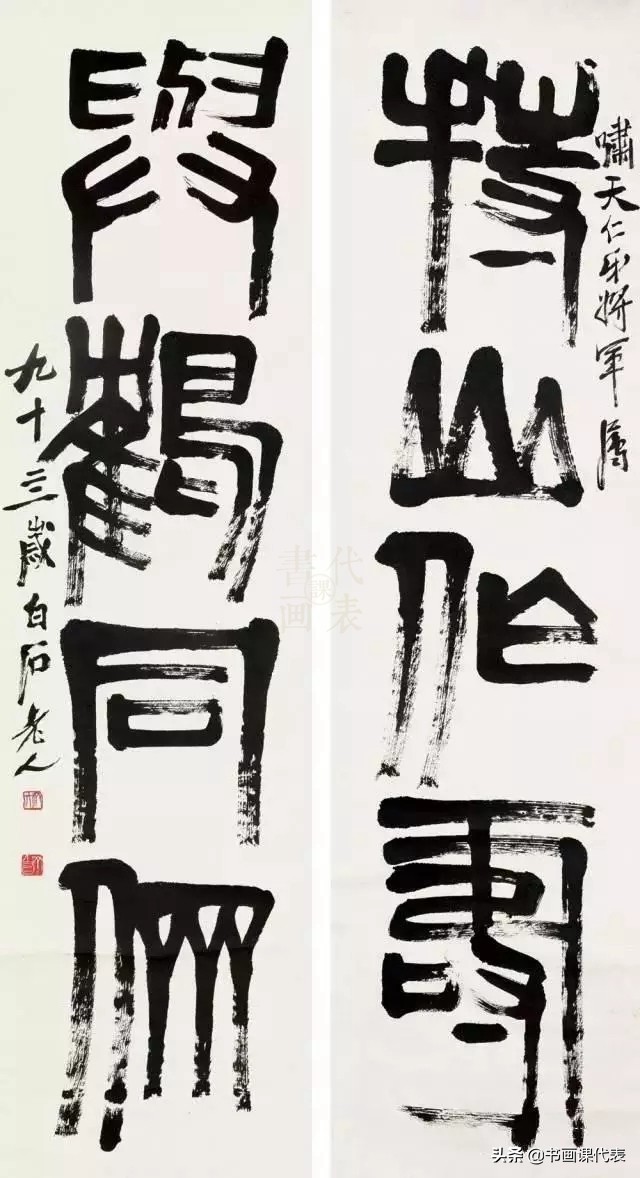 嘯天仁弟將軍屬
持山作壽
與鶴同儕
九十三歲白石老人
書画課代表
头条 @书画课代表